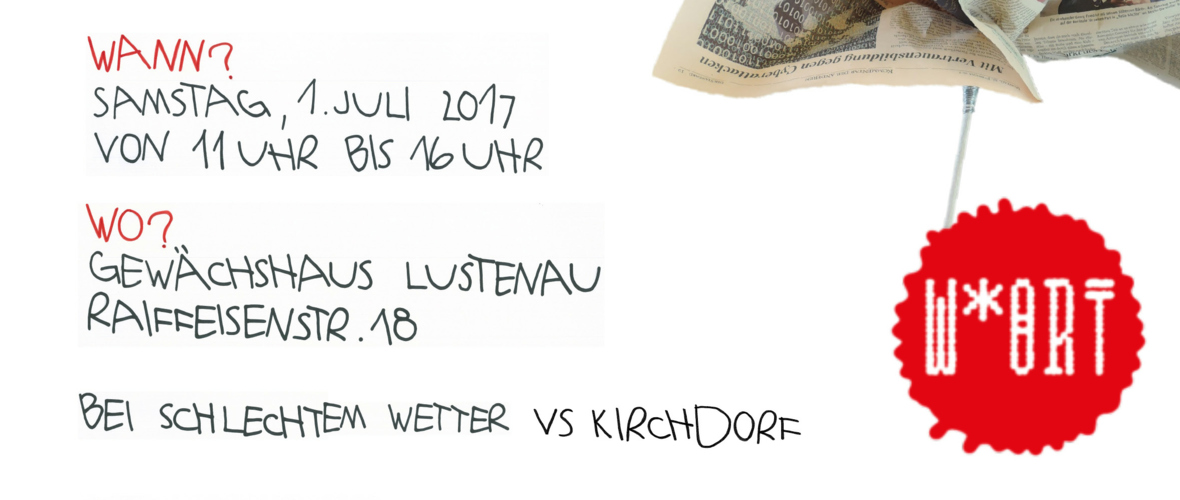 WANN?
SAMSTAG, 1. JULI 2017
VON 11 UHR BIS 16 UHR
WO?
GEWÄCHSHAUS LUSTENAU
RAIFFEISENSTR. 18
BEI SCHLECHTEM WETTER VS KIRCHDORF
Mit Vertrauensbildung gegen Cyberattacken
W*ORT